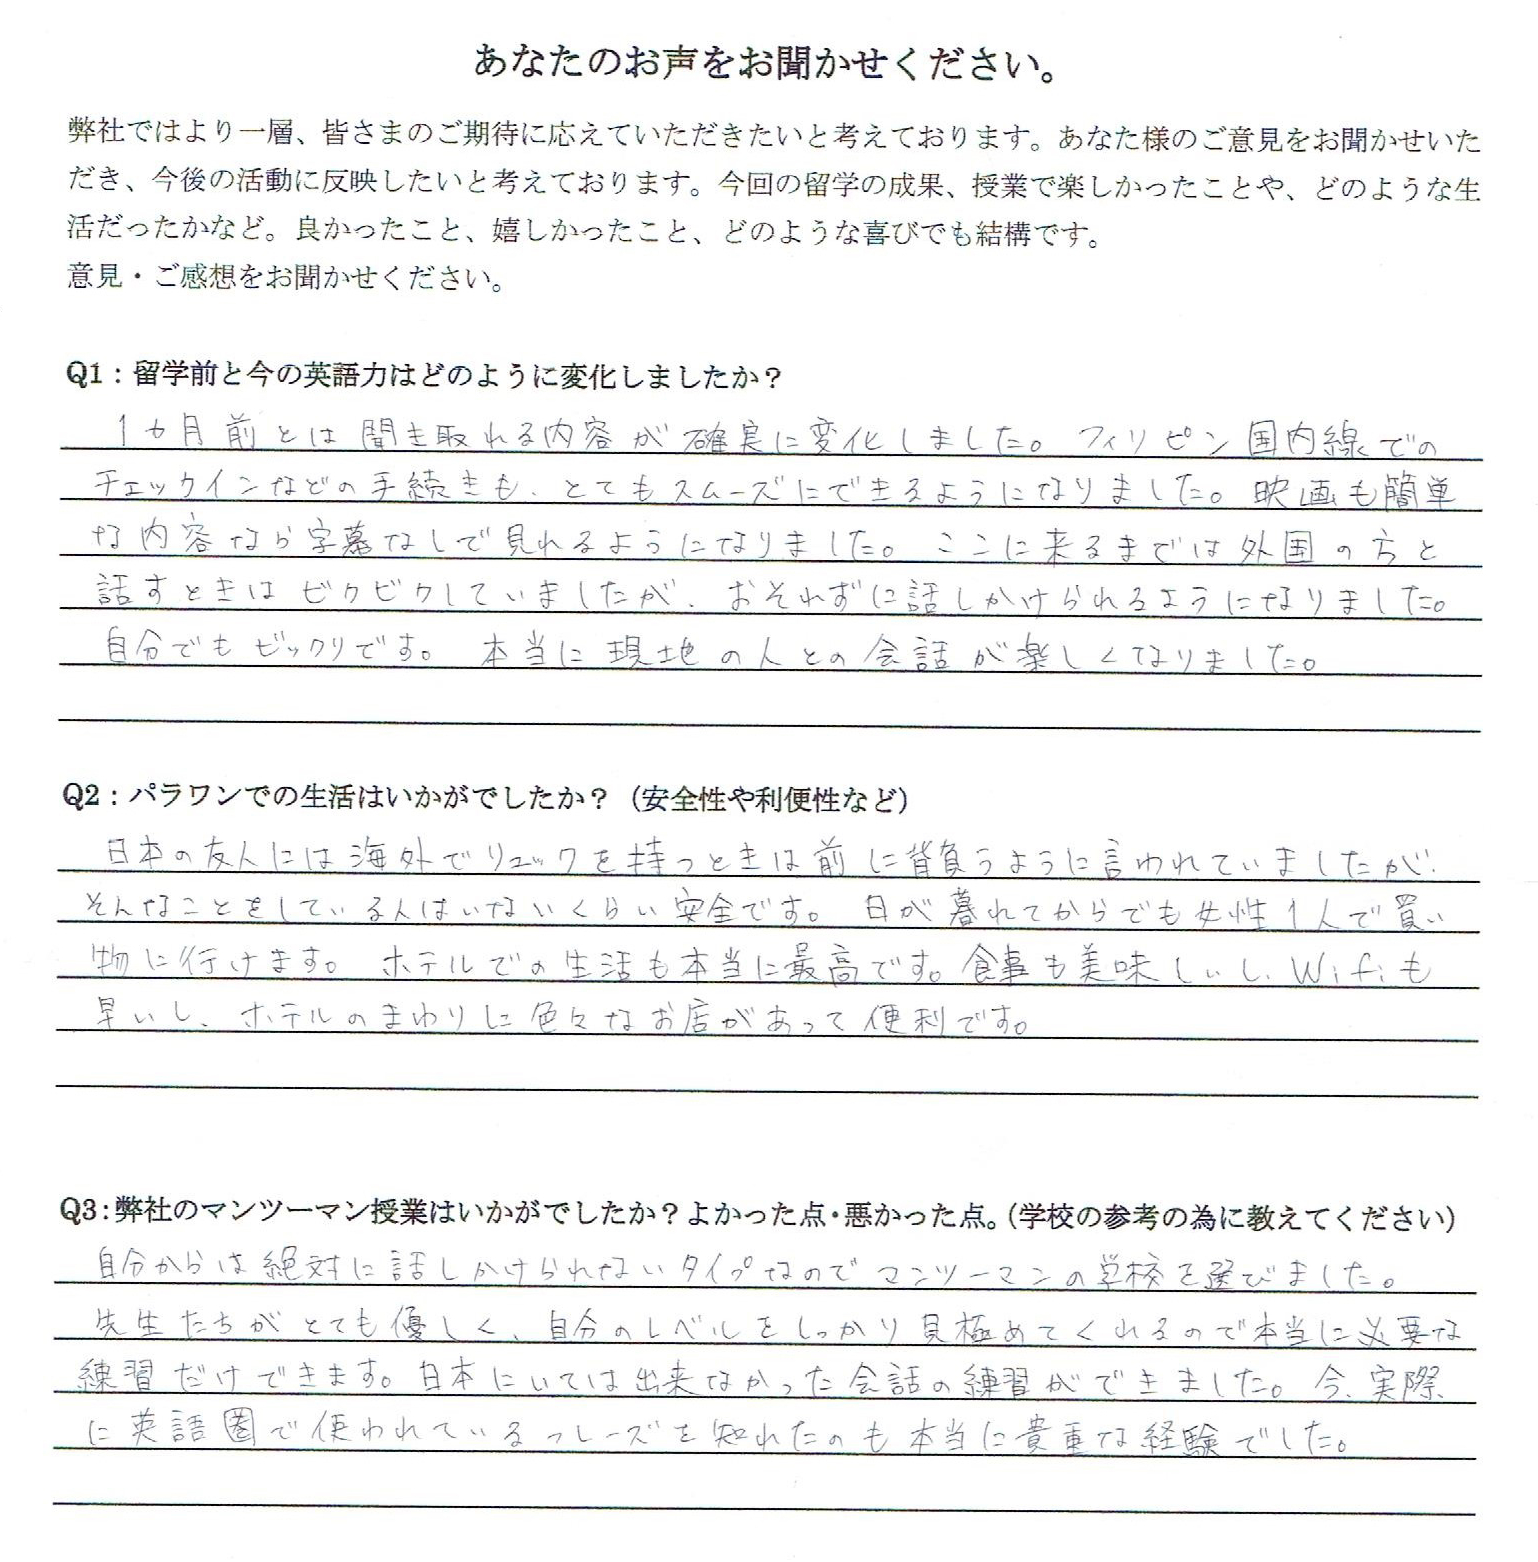 あなたのお声をお聞かせください。
弊社ではより一層、皆さまのご期待に応えていただきたいと考えております。あなた様のご意見をお聞かせいた
だき、今後の活動に反映したいと考えております。今回の留学の成果、授業で楽しかったことや、どのような生
活だったかなど。良かったこと、嬉しかったこと、どのような喜びでも結構です。
意見・ご感想をお聞かせください。
Q1：留学前と今の英語力はどのように変化しましたか？
1カ月前とは聞き取れる内容が確実に変化しました。フィリピン国内線での
チェックインなどの手続きも、とてもスムーズにできるようになりました。映画も簡単
な内容なら字幕なしで見れるようになりました。ここに来るまでは外国の方と
話すときはビクビクしていましたが、おそれずに話しかけられるようになりました。
自分でもビックリです。本当に現地の人との会話が楽しくなりました。
Q2：パラワンでの生活はいかがでしたか？（安全性や利便性など）
日本の友人には海外でリュックを持つときは前に背負うように言われていましたが、
そんなことをしている人はいないくらい安全です。日が暮れてからでも女性1人で買い
物に行けます。ホテルでの生活も本当に最高です。食事も美味しいし、Wifiも
早いし、ホテルのまわりに色々なお店があって便利です。
Q3：弊社のマンツーマン授業はいかがでしたか？よかった点・悪かった点。（学校の参考の為に教えてください）
自分からは絶対に話しかけられないタイプなのでマンツーマンの学校を選びました。
先生たちがとても優しく、自分のレベルをしっかり見極めてくれるので本当に必要な
練習だけできます。日本にいては出来なかった会話の練習ができました。今、実際
に英語圏で使われているフレーズを知れたのも本当に貴重な経験でした。